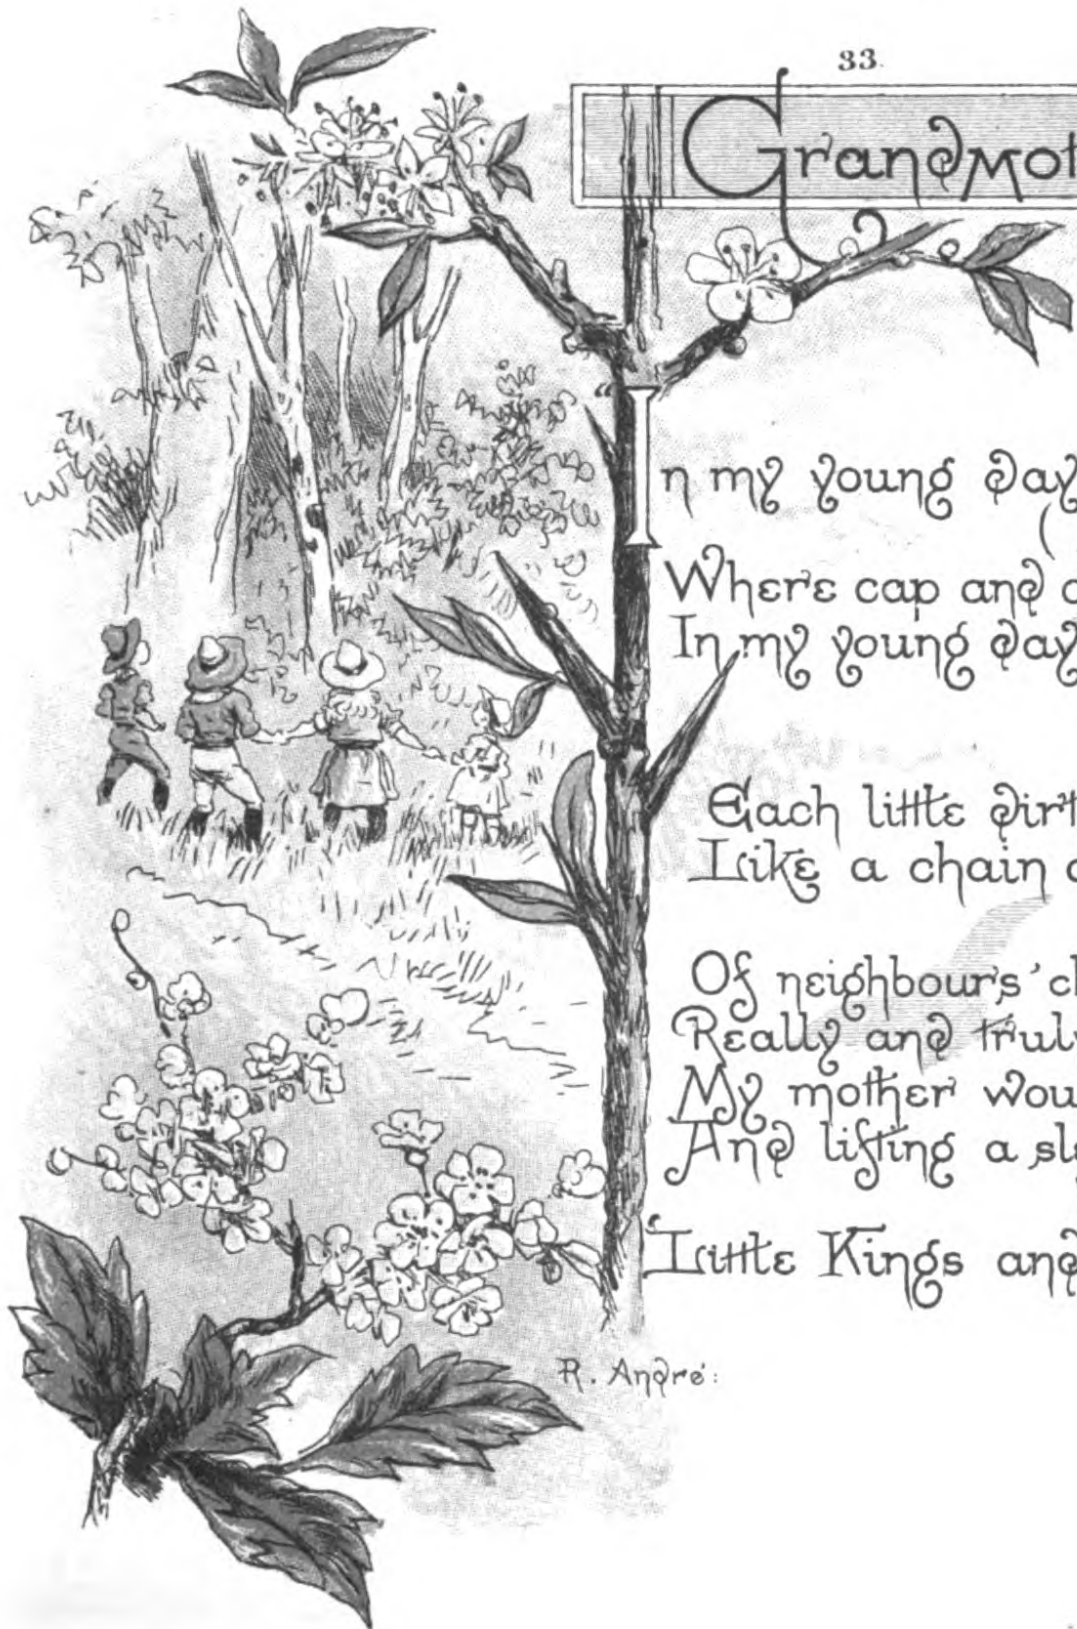 33.
Grandmot
"In my young day
(
Where cap and c
In my young day
Each little dirt
Like a chain o
Of neighbours' cl
Really and truly
My mother wou
And lifting a sle
'Little Kings and
R. André: